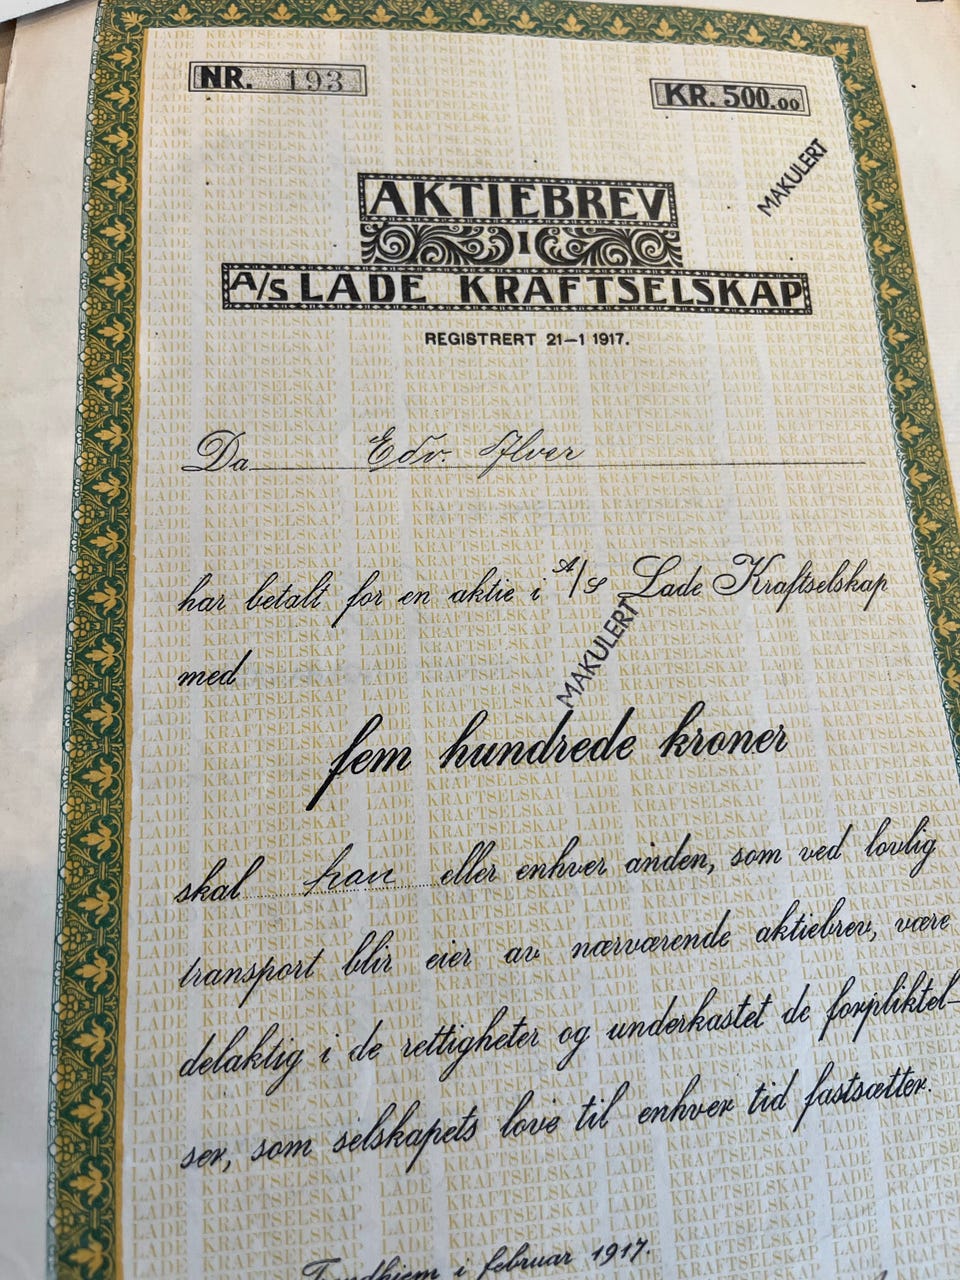 NR. 193
KR. 500.00
MAKULERT
AKTIEBREV
I
A/S LADE KRAFTSELSKAP
REGISTRERT 21-1 1917.
Da Edv. Ilver
har betalt for en aktie i A/S Lade Kraftselskap
MAKULERT
med
fem hundrede kroner
skal han eller enhver anden, som ved lovlig
transport blir eier av nærværende aktiebrev, være
delaktig i de rettigheter og underkastet de forpliktel-
ser, som selskapets love til enhver tid fastsætter.
Trondhjem i februar 1917.